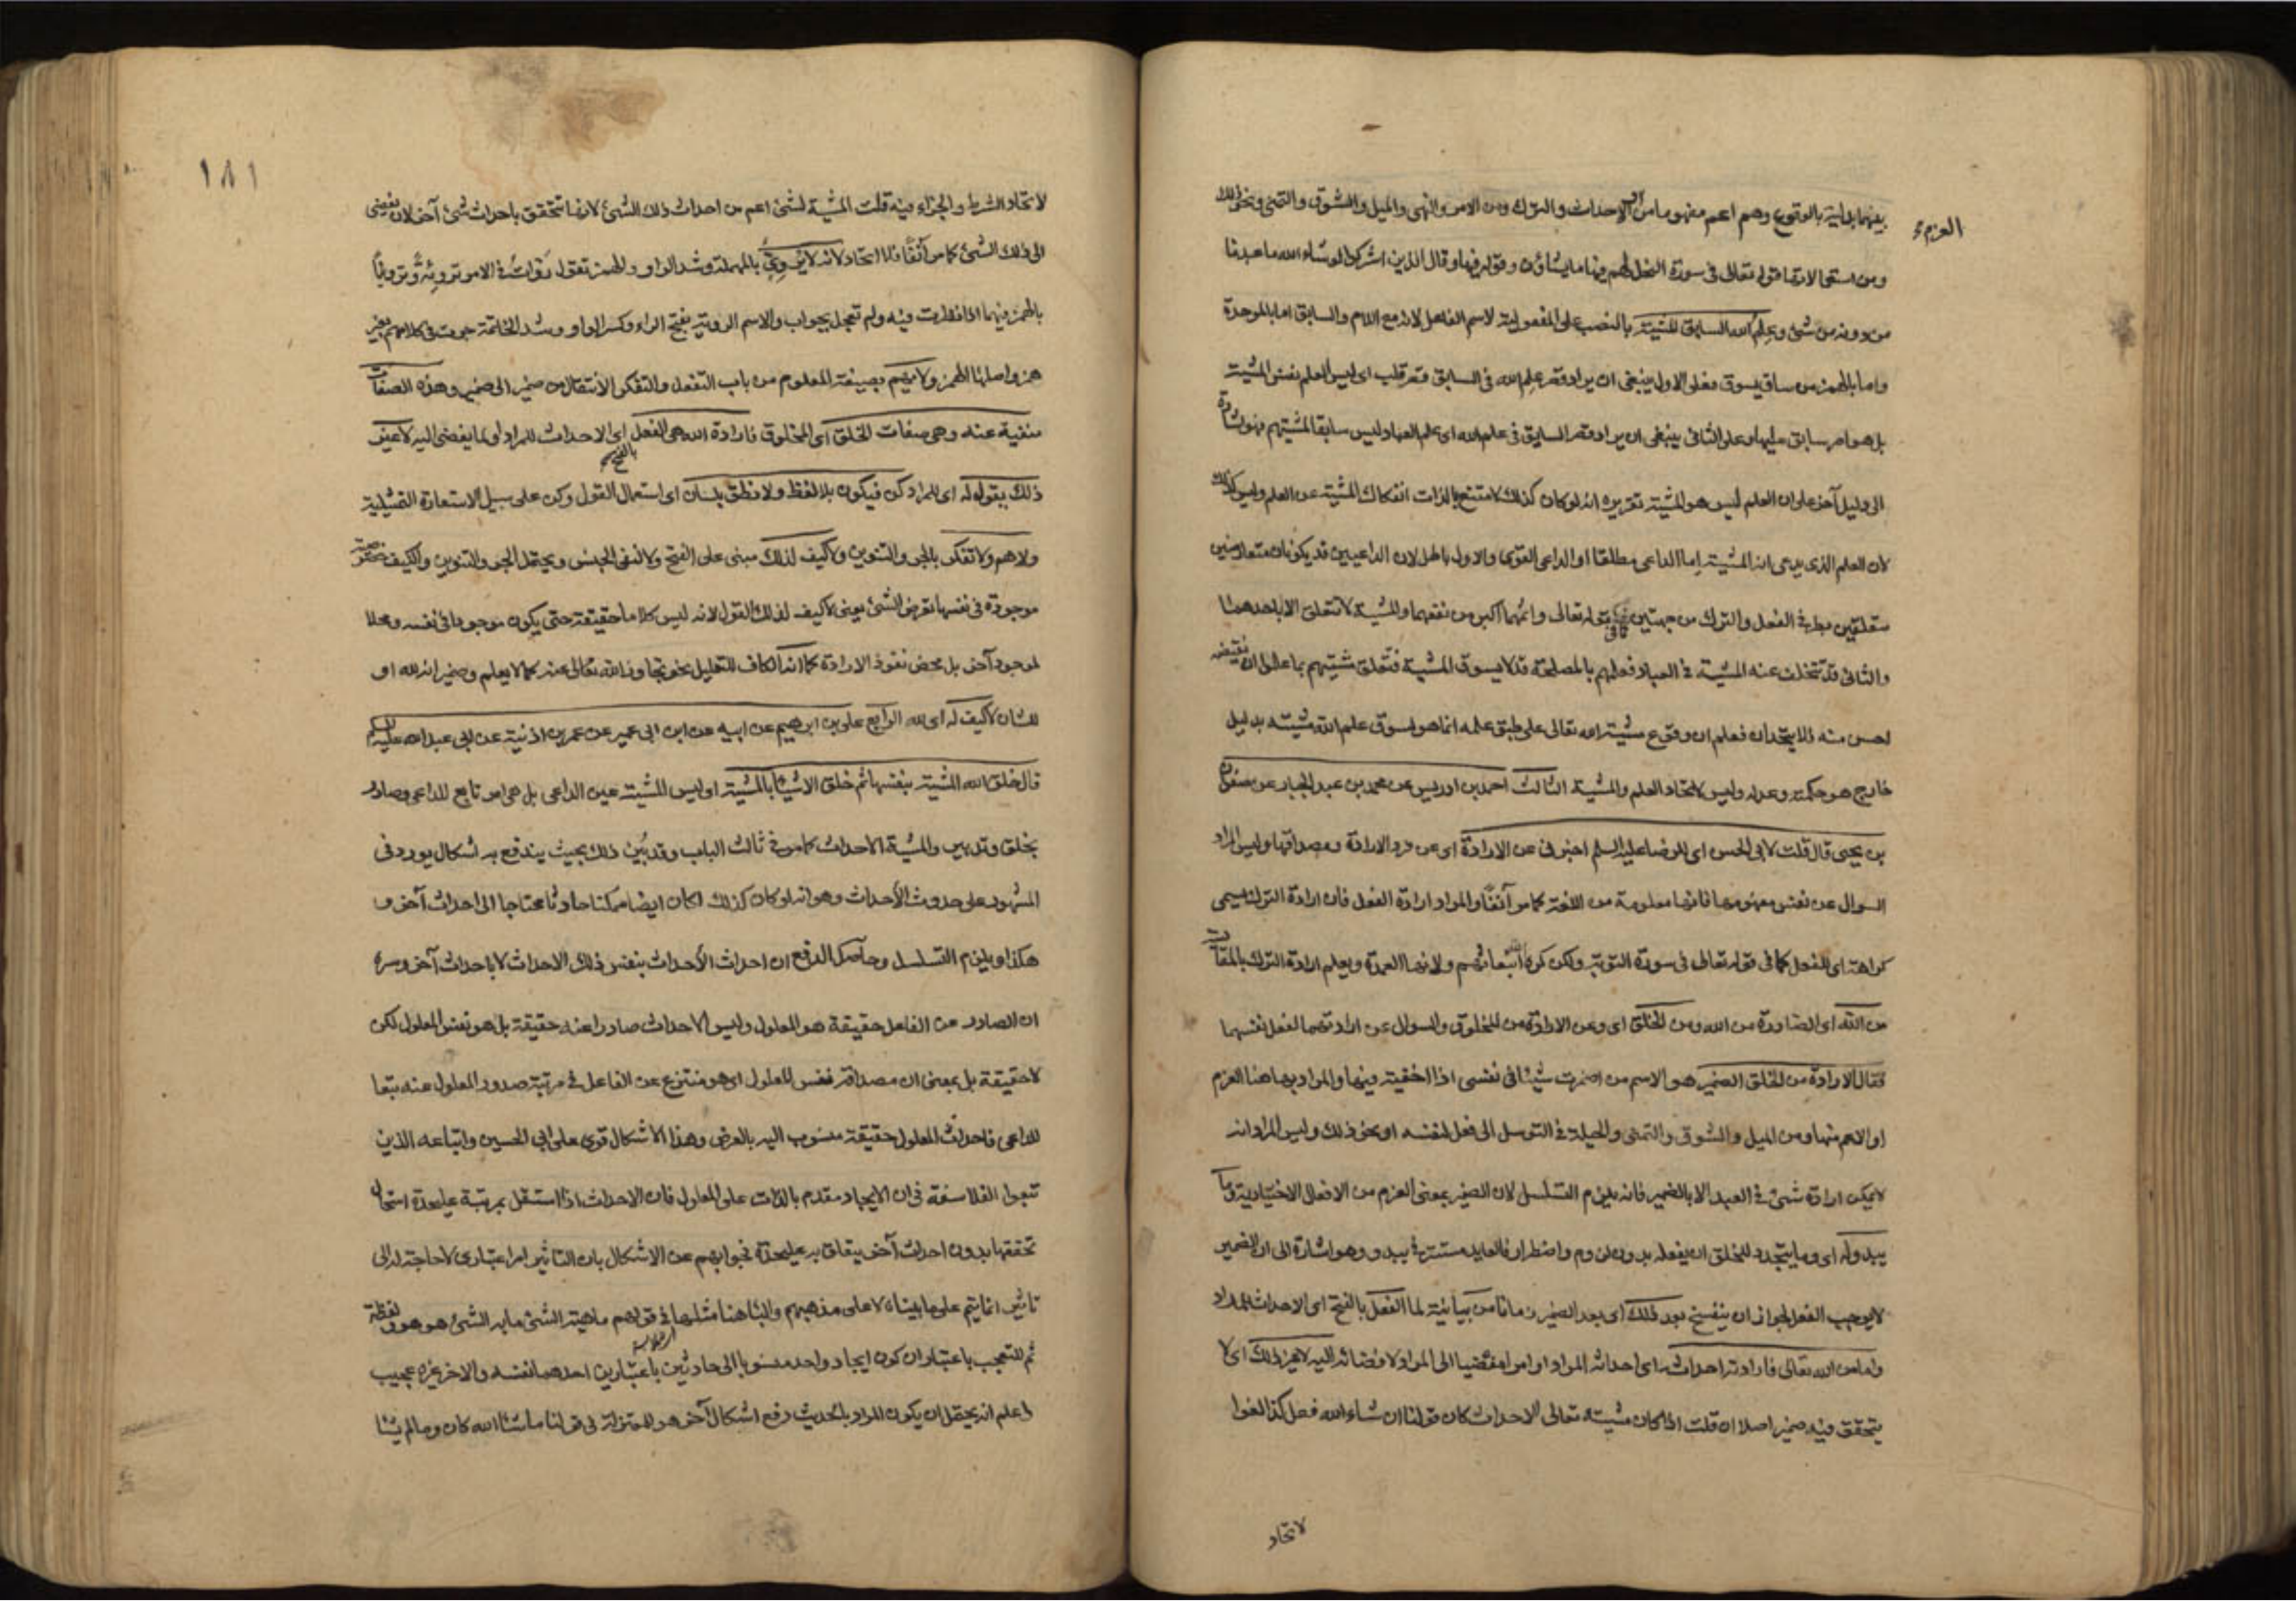 بينهما بداية بالوقوع وهم اعم مفهوما من الاحداث والترك ومن الامر والنهي والميل والشوق والتمني ونحو ذلك
العزم
ومن استعمالاتها قوله تعالى في سورة النحل لهم فيها ما يشاؤن وقوله فيها وقال الذين اشركوا لو شاء الله ما عبدنا
من دونه من شئ وعلم الله السابق للمشية بالنصب على المفعولية لاسم الفاعل لانه مع اللام والسابق اما بالموحدة
واما بالهمز من ساق يسوق فعلى الاول ينبغي ان يراد وقع علم الله في السابق قلب اى ليس العلم نفس المشية
بل هو امر سابق عليها وعلى الثاني ينبغي ان يراد السايق في علم الله اى علم العباد ليس سايقا لمشيتهم فهو اشارة
الى دليل آخر على ان العلم ليس هو المشية تقريره انه لو كان كذلك لامتنع بالذات انفكاك المشية عن العلم وليس كذلك
لان العلم الذى يدعى انه المشية اما الداعى مطلقا او الداعى القوى والاول باطل لان الداعيين قد يكونان متعارضين
متعلقين بطرفي الفعل والترك من جهتين كما في قوله تعالى واثمهما اكبر من نفعهما والمشية لا تتعلق الا باحدهما
والثاني قد تتخلف عنه المشية في العباد فعلمهم بالمصلحة قد لا يسوق المشية فتتعلق مشيتهم بما علموا ان نقيضه
احسن منه فلا يتحدان فعلم ان وقوع مشية الله تعالى على طبق علمه انما هو لسوق علم الله مشيته بدليل
خارج هو حكمته وعدله وليس لاتحاد العلم والمشية الثالث احمد بن ادريس عن محمد بن عبد الجبار عن صفوان
بن يحيى قال قلت لابى الحسن اى الرضا عليه السلم اخبرني عن الارادة اى عن فرد الارادة ومصداقها وليس المراد
السوال عن نفس مفهومها فانها معلومة من اللغة كما مر آنفا والمراد ارادة الفعل فان ارادة الترك يسمى
كراهة اى للفعل كما في قوله تعالى في سورة التوبة ولكن كره الله انبعاثهم ولانها العمدة ويعلم ارادة الترك بالمقايسة
من الله اى الصادرة من الله ومن الخلق اى وعن الارادة من المخلوق والسوال عن ارادتهما لفعل نفسهما
فقال الارادة من الخلق الضمير هو الاسم من اضمرت شيئا في نفسى اذا اخفيته فيها والمراد بها هنا العزم
او الاعم منها ومن الميل والشوق والتمنى والحيلة في التوسل الى فعل لنفسه او نحو ذلك وليس المراد انه
لا يمكن ارادة شئ في العبد الا بالضمير فانه يلزم التسلسل لان الضمير بمعنى العزم من الافعال الاختيارية وما
يبدو له اى وما يتجدد للخلق ان يفعله بدون لزوم واضطرار فالعايد مستتر في يبدو وهو اشارة الى ان الضمير
لا يوجب الفعل لجواز ان ينفسخ بعد ذلك اى بعد الضمير زمانا من بيانية لما الفعل بالفتح اى الاحداث للمراد
واما من الله تعالى فارادته احداثه اى احداثه المراد او امرا مفضيا الى المراد لافضائه اليه لا غير ذلك اى لا
يتحقق فيه ضمير اصلا ان قلت اذا كان مشيته تعالى الاحداث كان قولنا ان شاء الله فعل كذا لغوا
لاتحاد
١٨١
لاتحاد الشرط والجزاء فيه قلت المشية لشئ اعم من احداث ذلك الشئ لانها تتحقق باحداث شئ آخر لان يفضى
الى ذلك الشئ كما مر آنفا فلا اتحاد لانه لا يروى بالمهملة وشد الواو والهمز تقول روأت في الامر تروئة وترويئا
بالهمز فيهما اذا نظرت فيه ولم تعجل بجواب والاسم الروية بفتح الراء وكسر الواو وشد الخاتمة جرت في كلامهم بغير
همز واصلها الهمز ولا يهم بصيغة المعلوم من باب التفعل والتفكر الانتقال من ضمير الى ضمير وهذه الصفات
منفية عنه وهى صفات الخلق اى المخلوق فارادة الله هى الفعل بالفتح اى الاحداث للمراد او لما يفضى اليه لا غير
ذلك يقول له اى للمراد كن فيكون بلا لفظ ولا نطق بلسان اى استعمال القول وكن على سبيل الاستعارة التمثيلية
ولا هم ولا تفكر بالجر والتنوين ولا كيف لذلك مبنى على الفتح ولا لنفى الجنس ويحتمل الجر والتنوين والكيف خصوصية
موجودة في نفسها تعرض الشئ يعنى لا كيف لذلك القول لانه ليس كلاما حقيقة حتى يكون موجودا في نفسه ومحلا
لموجود آخر بل محض نفوذ الارادة كما انه الكاف للتعليل نحو تجاوز الله تعالى عنه كما لا يعلم وضمير انه لله او
للشان لا كيف له اى لله الرابع على بن ابرهيم عن ابيه عن ابن ابى عمير عن عمر بن اذنية عن ابى عبد الله عليه السلم
قال خلق الله المشية بنفسها ثم خلق الاشياء بالمشية او ليس المشية عين الداعى بل هى امر تابع للداعى وصادر
بخلق وتدبير والمشية الاحداث كما مر في ثالث الباب وقد بين ذلك بحيث يندفع به اشكال يورد في
المشهور على حدوث الأحداث وهو انه لو كان كذلك لكان ايضا ممكنا حادثا محتاجا الى احداث آخر و
هكذا ويلزم التسلسل وحاصل الدفع ان احداث الأحداث بنفس ذلك الاحداث لا باحداث آخر وسره
ان الصادر عن الفاعل حقيقة هو المعلول وليس الاحداث صادرا عنه حقيقة بل هو نفس المعلول لكن
لا حقيقة بل بمعنى ان مصداقه نفس المعلول اى هو منتزع عن الفاعل في مرتبة صدور المعلول عنه تبعا
للداعى فاحداث المعلول حقيقة منسوب اليه بالعرض وهذا الاشكال قوى على ابى الحسين واتباعه الذين
تبعوا الفلاسفة في ان الايجاد مقدم بالذات على المعلول فان الاحداث اذا استقل بمرتبة عليحدة استحال
تحققها بدون احداث آخر يتعلق به عليحدة فجوابهم عن الاشكال بان التاثير امر اعتبارى لا حاجة له الى
تاثير انما يتم على ما بيناه لا على مذهبهم والباء هنا مثلها في قولهم ماهية الشئ ما به الشئ هو هو ولفظة
ثم للتعجب باعتبار ان كون ايجاد واحد منسوبا الى حادثين باعتبارين احدهما نفسه والاخر غيره عجيب
واعلم انه يحتمل ان يكون المراد بالحديث دفع اشكال آخر هو للمعتزلة في قولنا ما شاء الله كان وما لم يشا